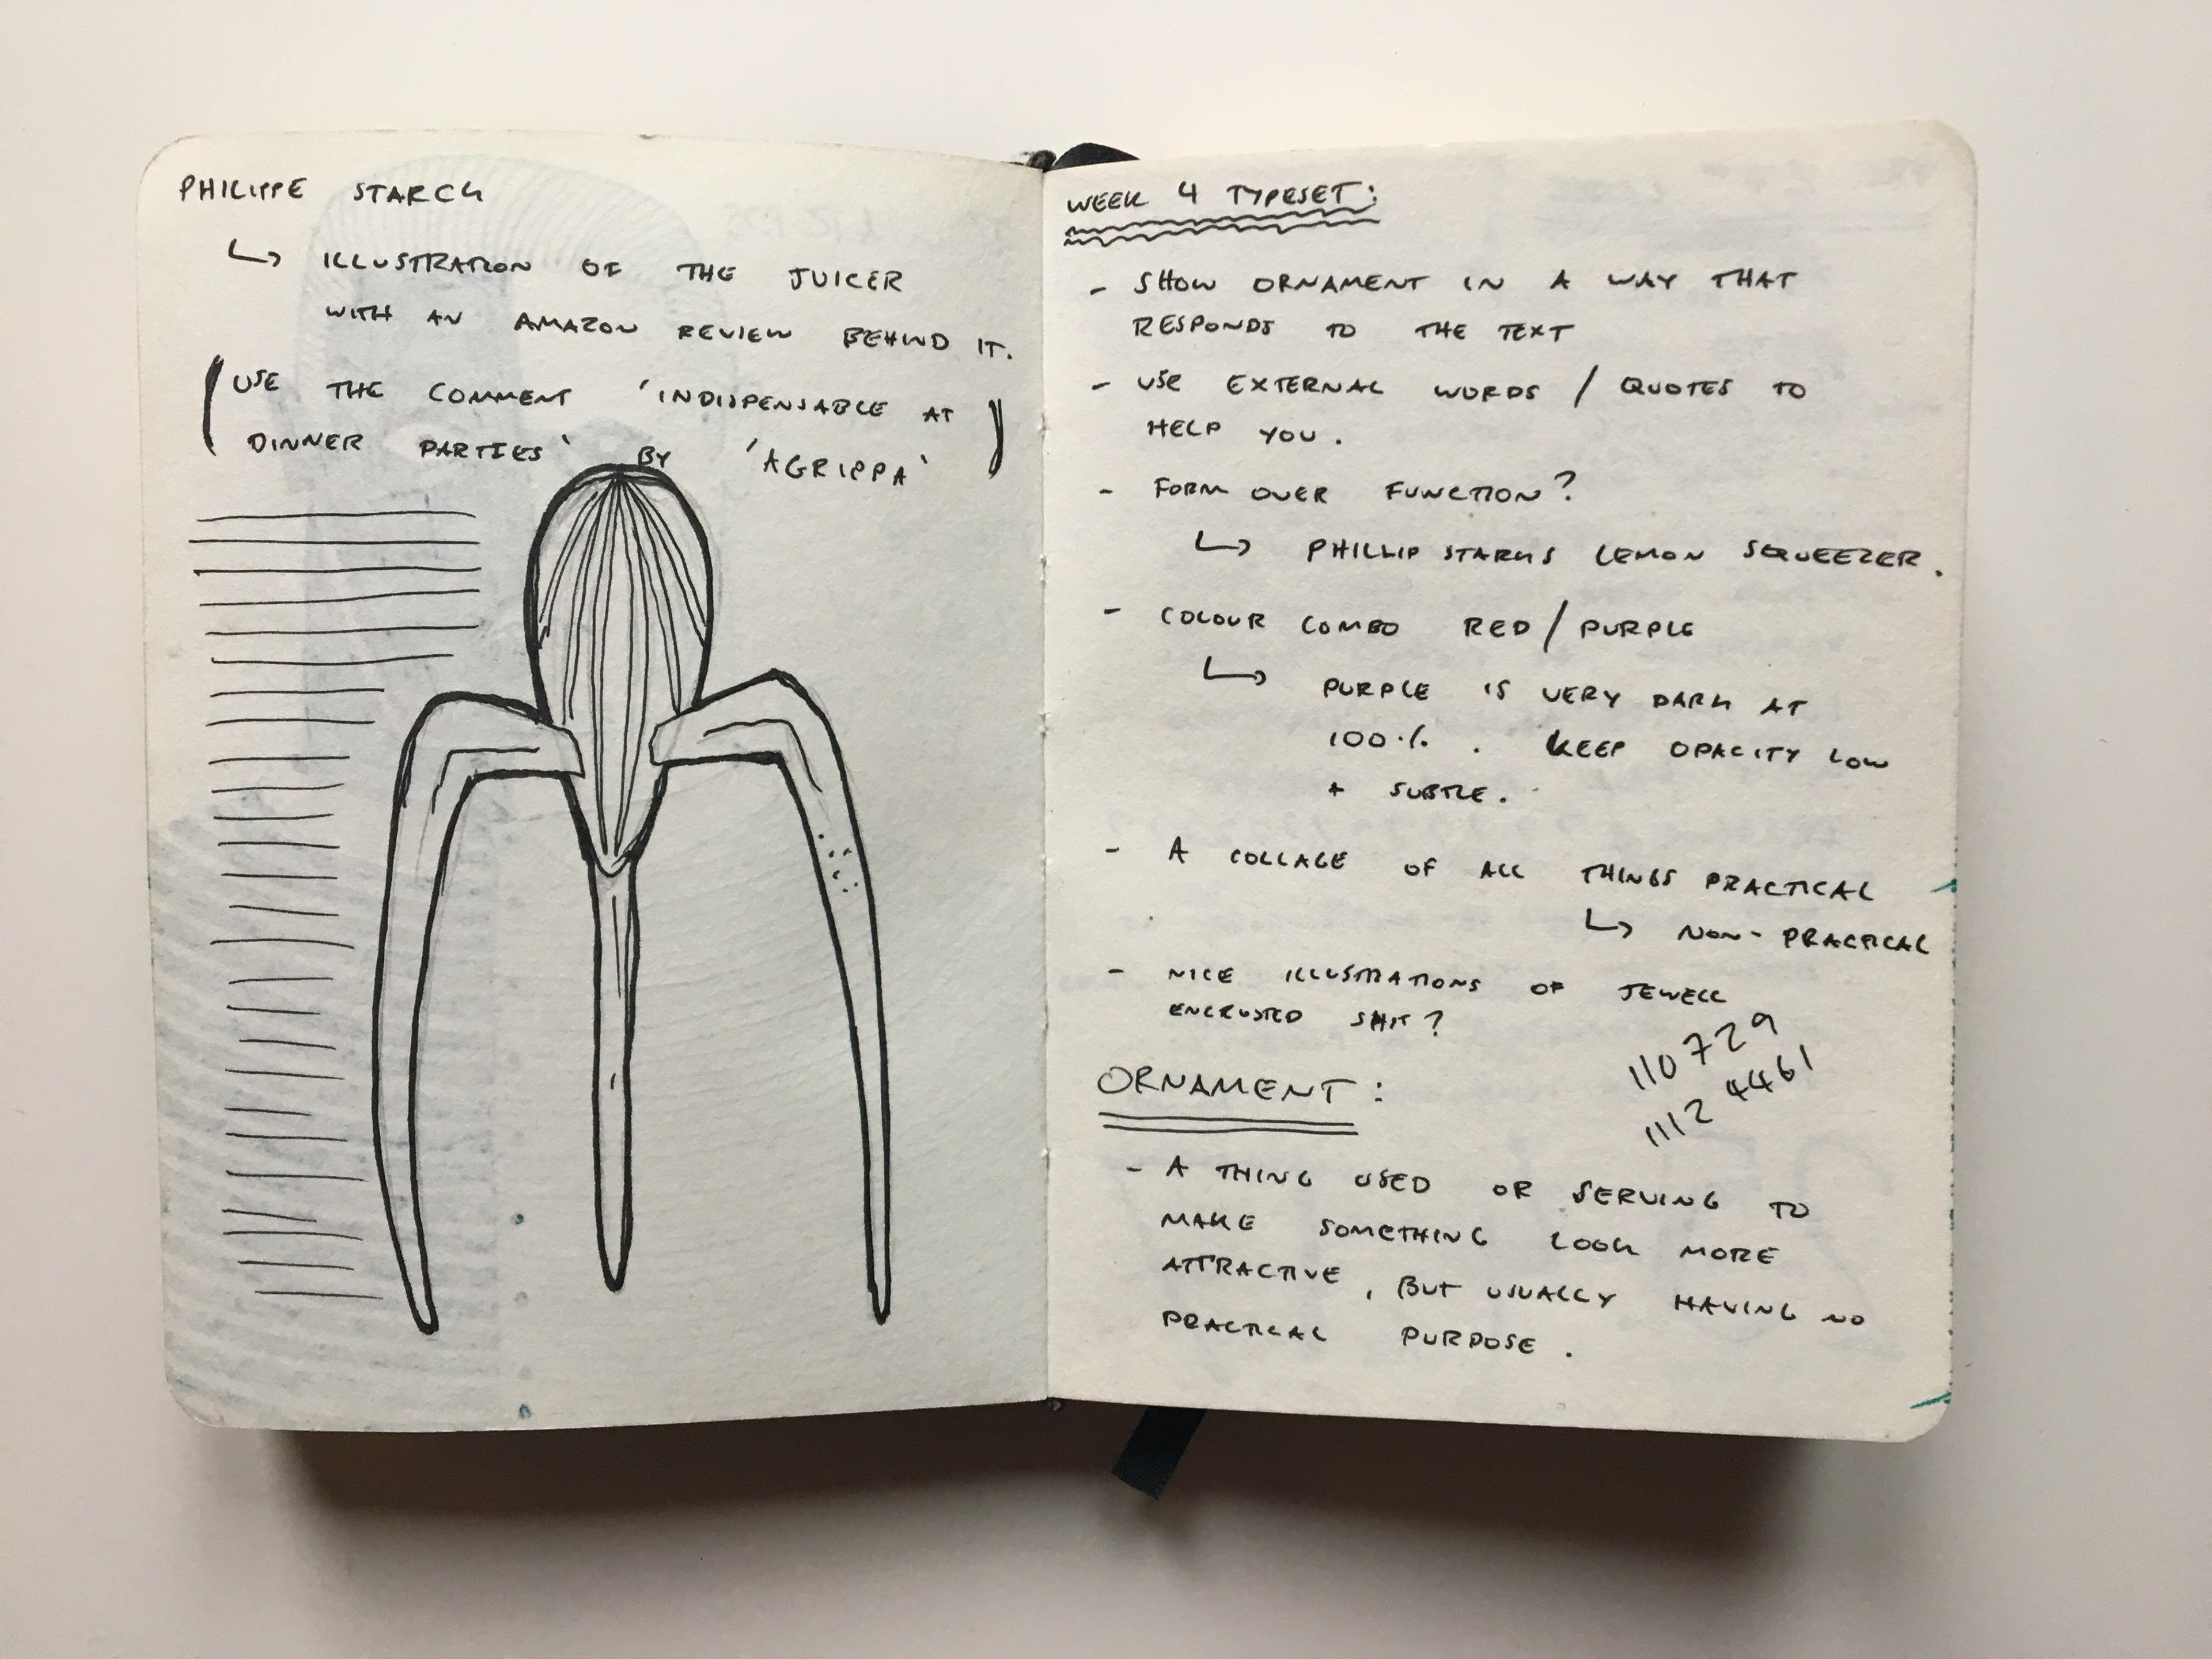 PHILIPPE STARCK
↳ ILLUSTRATION OF THE JUICER
WITH AN AMAZON REVIEW BEHIND IT.
(USE THE COMMENT 'INDISPENSABLE AT
DINNER PARTIES' BY 'AGRIPPA')
WEEK 4 TYPESET:
- SHOW ORNAMENT IN A WAY THAT
RESPONDS TO THE TEXT
- USE EXTERNAL WORDS / QUOTES TO
HELP YOU.
- FORM OVER FUNCTION?
↳ PHILLIP STARKS LEMON SQUEEZER.
- COLOUR COMBO RED / PURPLE
↳ PURPLE IS VERY DARK AT
100%. KEEP OPACITY LOW
+ SUBTLE.
- A COLLAGE OF ALL THINGS PRACTICAL
↳ NON-PRACTICAL
- NICE ILLUSTRATIONS OF JEWELL
ENCRUSTED SHIT?
110729
1112 4461
ORNAMENT:
- A THING USED OR SERVING TO
MAKE SOMETHING LOOK MORE
ATTRACTIVE, BUT USUALLY HAVING NO
PRACTICAL PURPOSE.